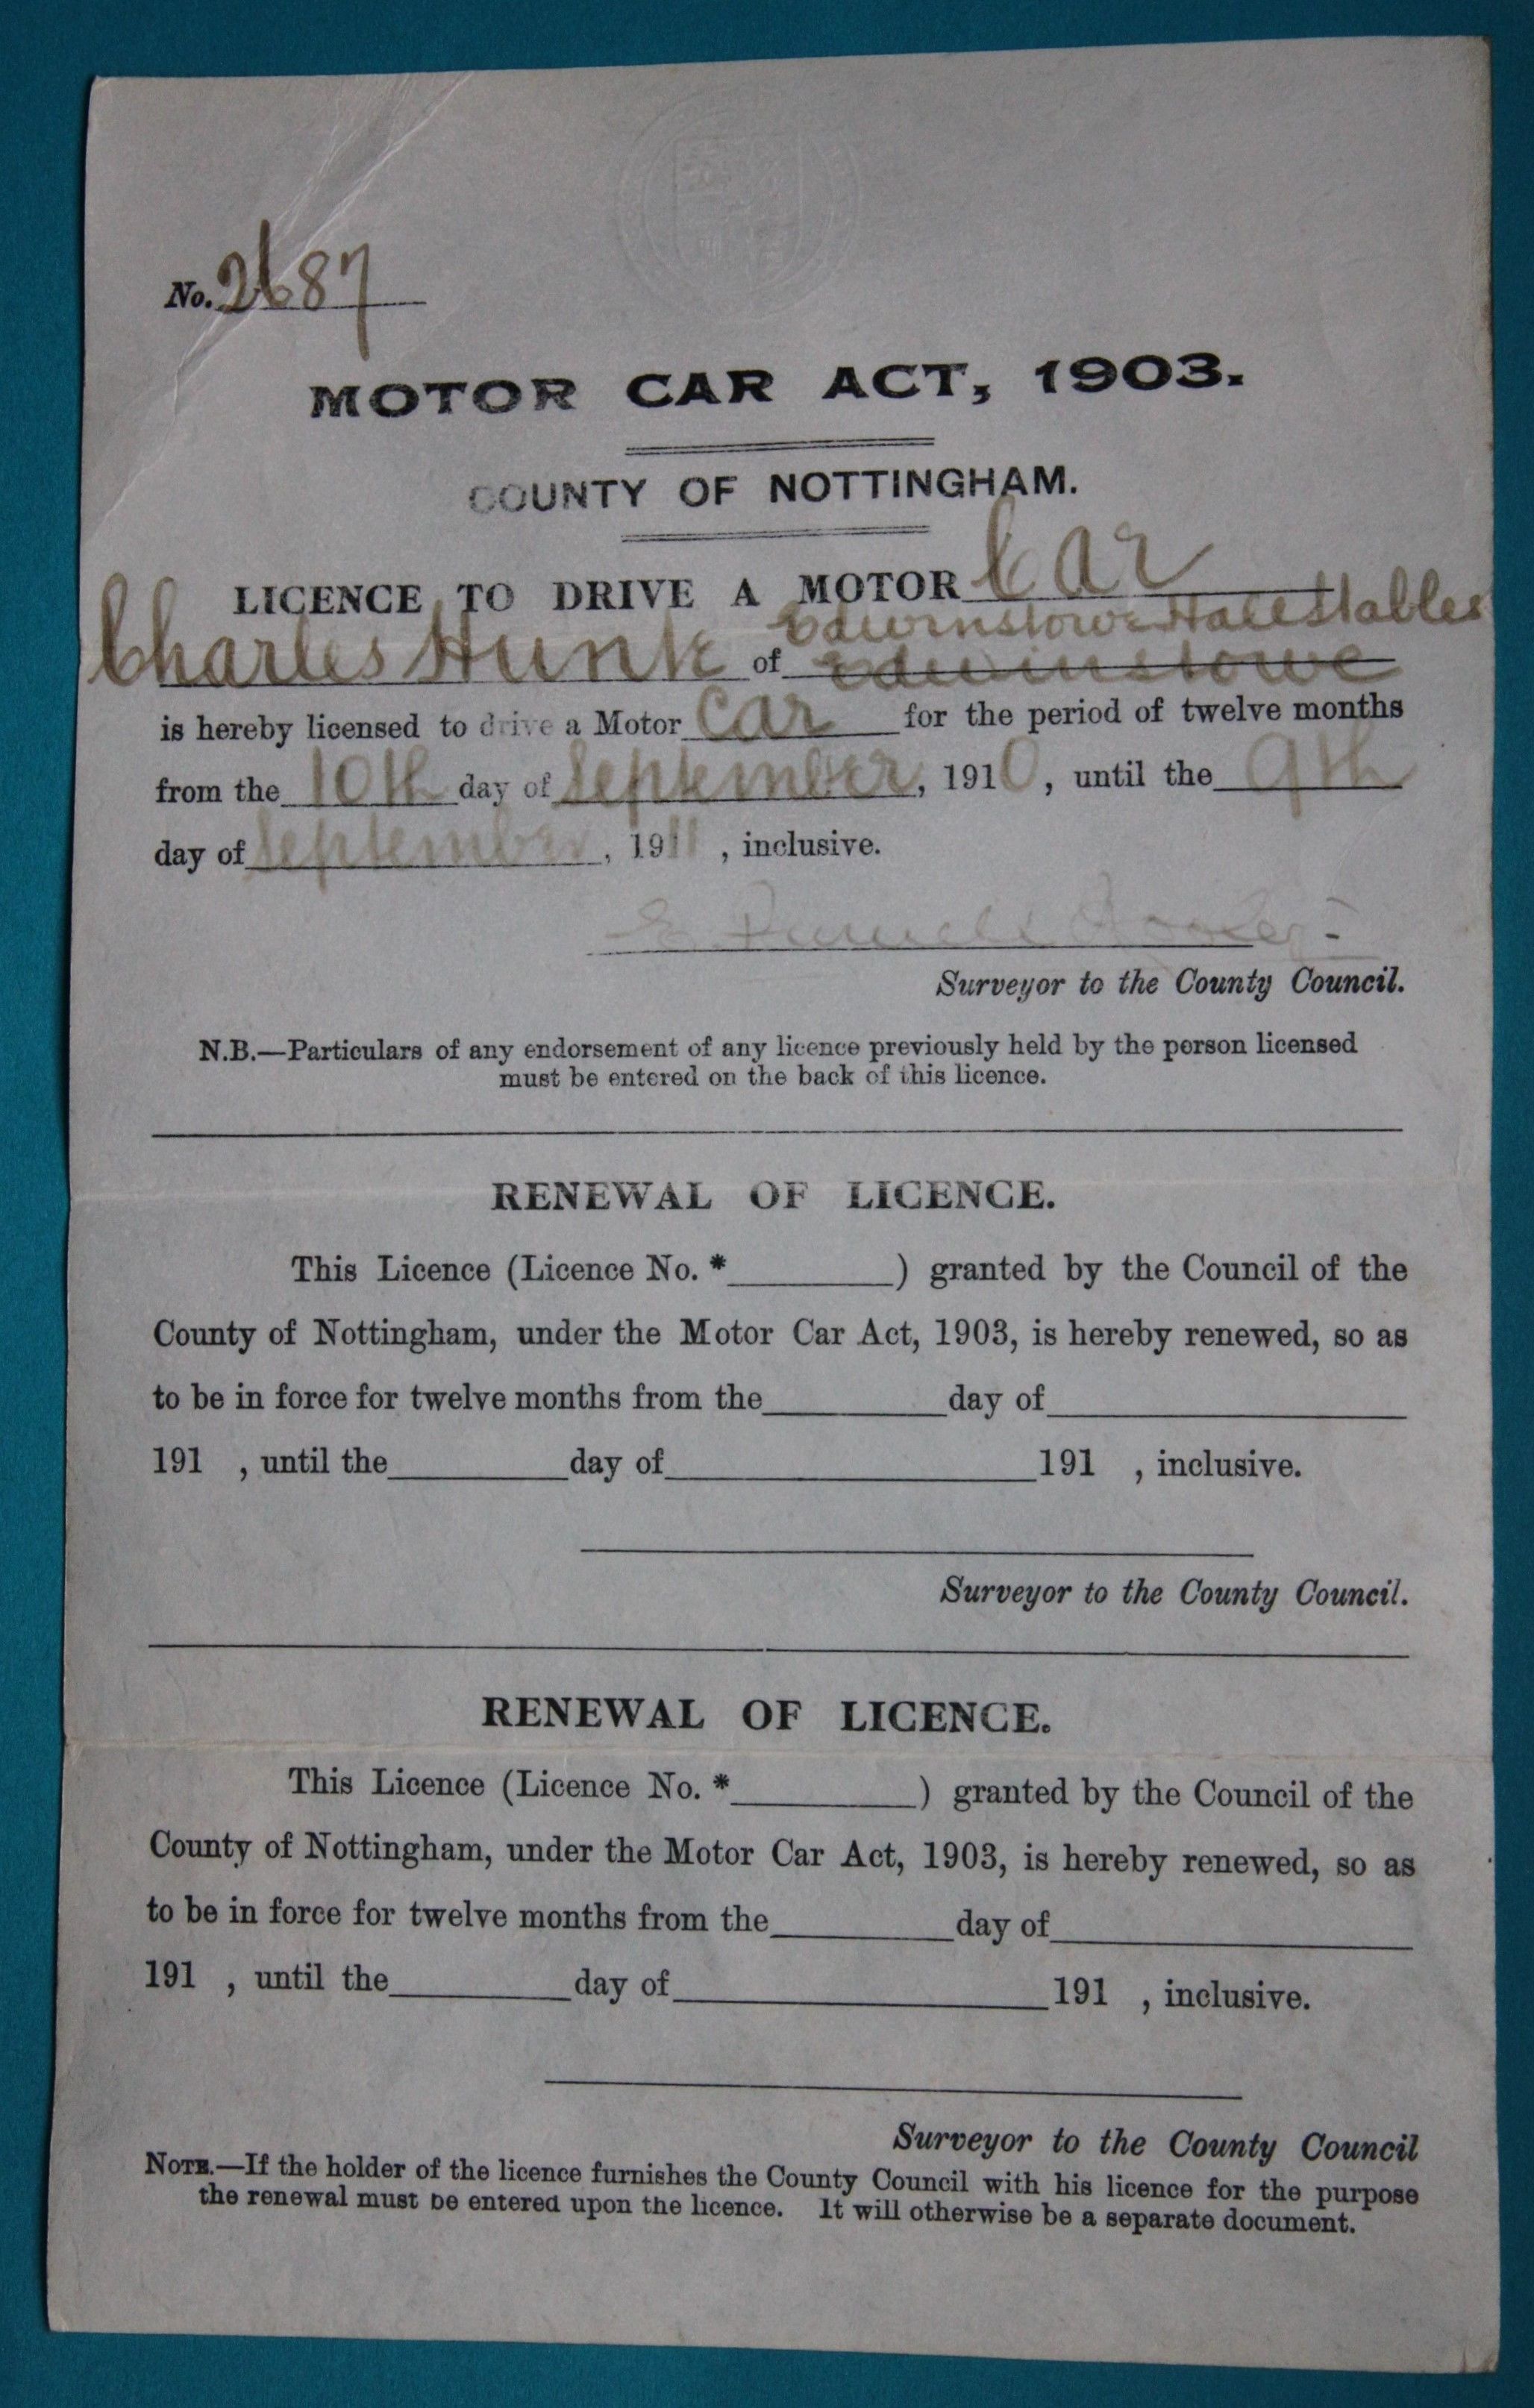 No. 2687
MOTOR CAR ACT, 1903.
COUNTY OF NOTTINGHAM.
LICENCE TO DRIVE A MOTOR Car
Edwinstowe Hall Stables
Charles Hunk of Edwinstowe
is hereby licensed to drive a Motor Car for the period of twelve months
from the 10th day of September, 1910, until the 9th
day of September, 1911, inclusive.
E.
Surveyor to the County Council.
N.B.—Particulars of any endorsement of any licence previously held by the person licensed
must be entered on the back of this licence.
RENEWAL OF LICENCE.
This Licence (Licence No. * ) granted by the Council of the
County of Nottingham, under the Motor Car Act, 1903, is hereby renewed, so as
to be in force for twelve months from the day of
191 , until the day of 191 , inclusive.
Surveyor to the County Council.
RENEWAL OF LICENCE.
This Licence (Licence No. * ) granted by the Council of the
County of Nottingham, under the Motor Car Act, 1903, is hereby renewed, so as
to be in force for twelve months from the day of
191 , until the day of 191 , inclusive.
Surveyor to the County Council
NOTE.—If the holder of the licence furnishes the County Council with his licence for the purpose
the renewal must be entered upon the licence. It will otherwise be a separate document.